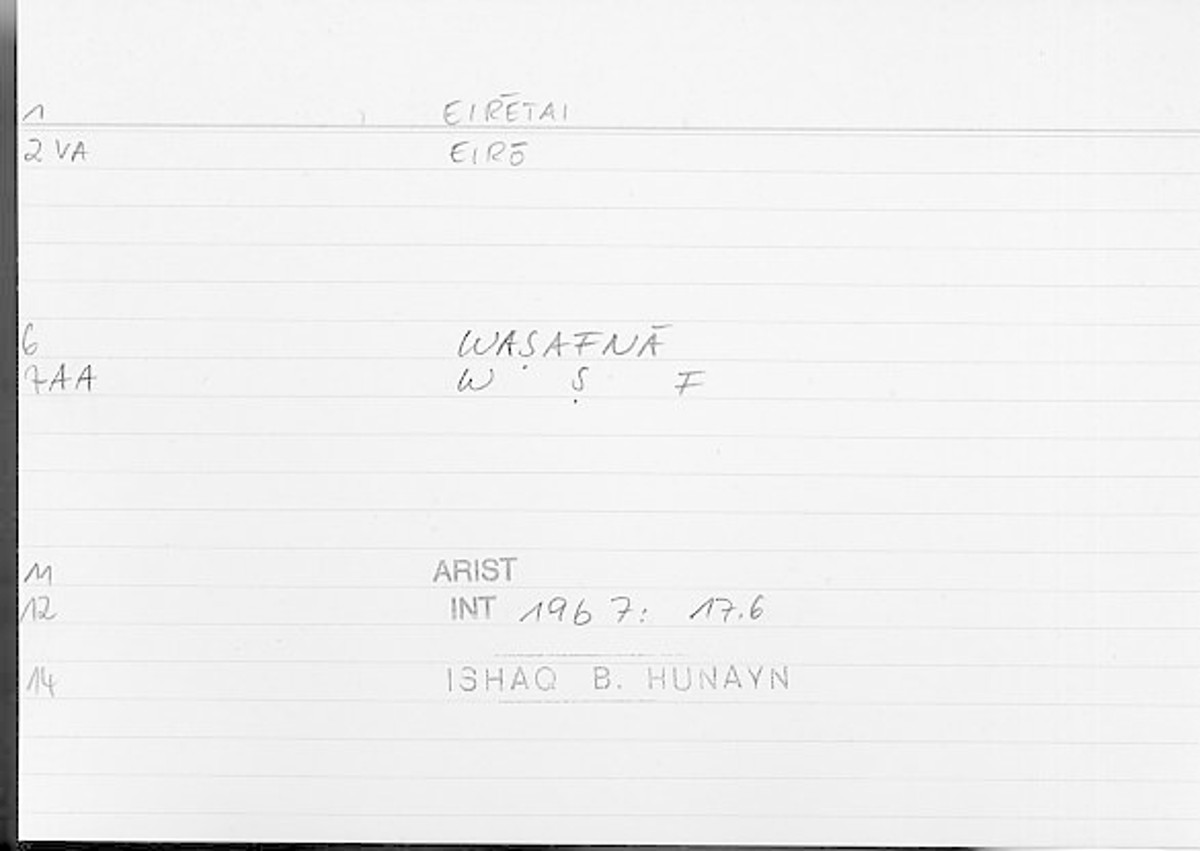 1 EIRĒTAI
2 VA EIRŌ
6 WAṢAFNĀ
7AA W Ṣ F
11 ARIST
12 INT 1967: 17.6
14 ISHAQ B. HUNAYN